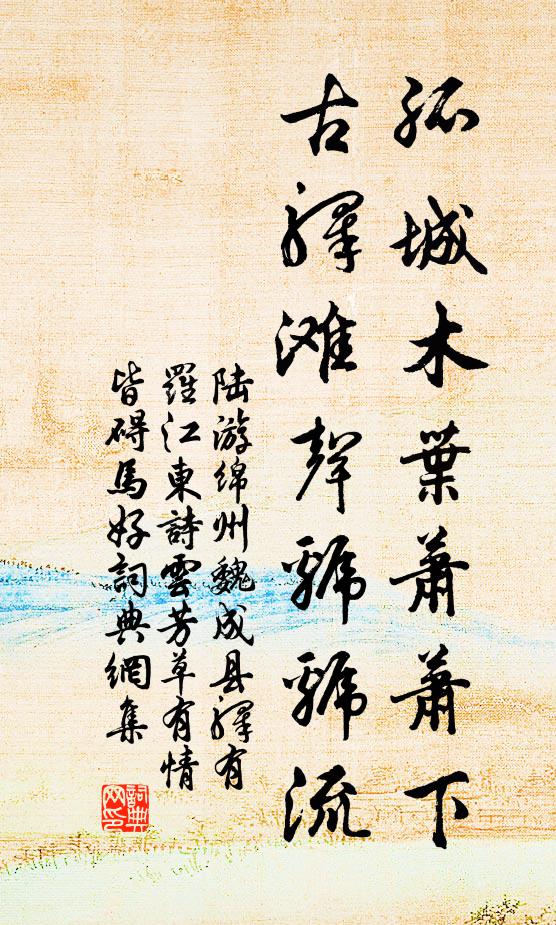 孤城木葉蕭蕭下
古驛滩聲虢虢流
陆游绵州魏成县驛有
羅江東詩雲芳草有情
皆碍馬好詞典網集
詞典
网印